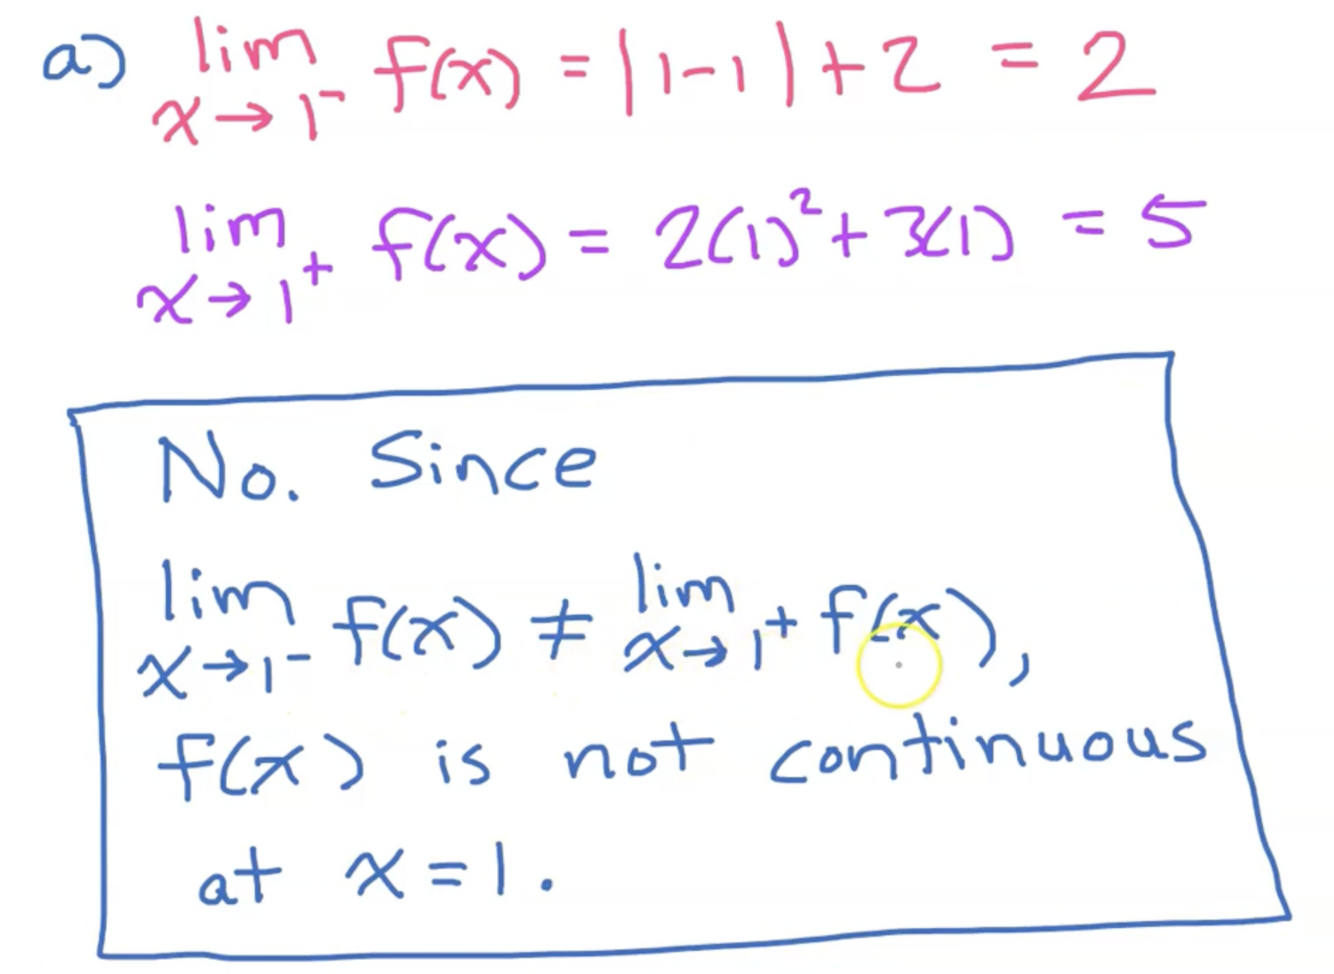 a) lim x→1⁻ f(x) = |1-1| + 2 = 2
lim x→1⁺ f(x) = 2(1)² + 3(1) = 5
No. Since
lim x→1⁻ f(x) ≠ lim x→1⁺ f(x),
f(x) is not continuous
at x = 1.